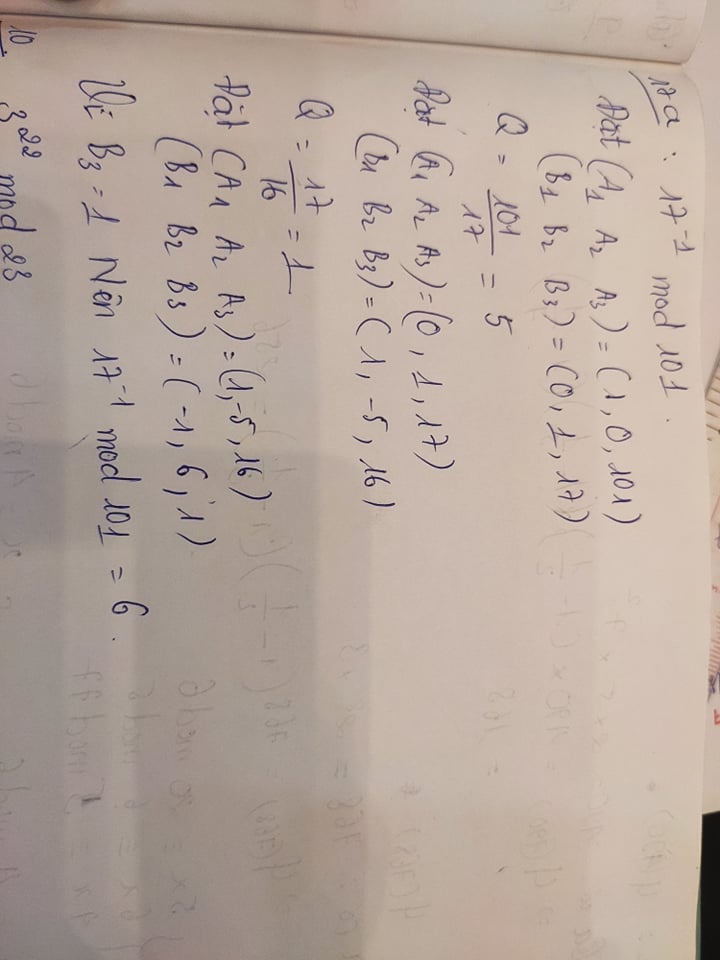 17a : 17⁻¹ mod 101.
Đặt (A₁ A₂ A₃) = (1, 0, 101)
(B₁ B₂ B₃) = (0, 1, 17)
Q = 101/17 = 5
Đặt (A₁ A₂ A₃) = (0, 1, 17)
(B₁ B₂ B₃) = (1, -5, 16)
Q = 17/16 = 1
Đặt (A₁ A₂ A₃) = (1, -5, 16)
(B₁ B₂ B₃) = (-1, 6, 1)
Vì B₃ = 1 Nên 17⁻¹ mod 101 = 6.
10 3²² mod 23